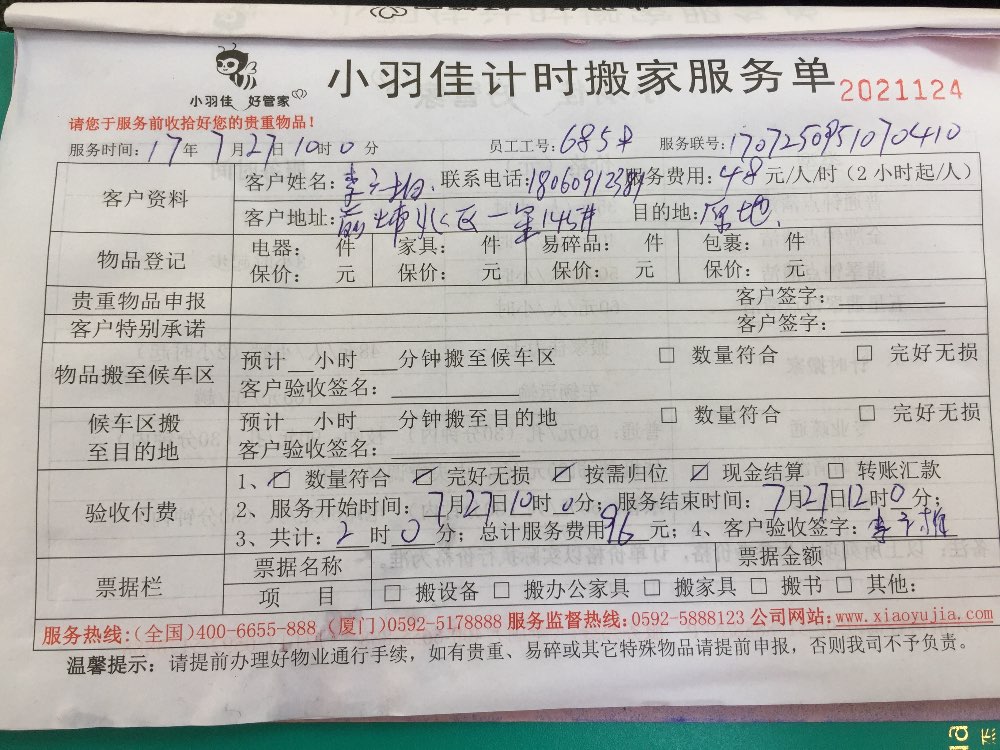 小羽佳 好管家
小羽佳计时搬家服务单 2021124
请您于服务前收拾好您的贵重物品!
服务时间: 17年 7月27日10时0分 员工工号: 685 服务联号: 1707250951070410
客户资料
客户姓名: 李 联系电话: 服务费用: 48元/人/时(2小时起/人)
客户地址: 前埔 区一 目的地: 原地.
物品登记
电器: 件 家具: 件 易碎品: 件 包裹: 件
保价: 元 保价: 元 保价: 元 保价: 元
贵重物品申报 客户签字:
客户特别承诺 客户签字:
物品搬至候车区
预计__小时___分钟搬至候车区 □ 数量符合 □ 完好无损
客户验收签名:
候车区搬至目的地
预计__小时___分钟搬至目的地 □ 数量符合 □ 完好无损
客户验收签名:
验收付费
1、☑ 数量符合 ☑ 完好无损 ☑ 按需归位 ☑ 现金结算 □ 转账汇款
2、服务开始时间: 7月27日10时0分; 服务结束时间: 7月27日12时0分;
3、共计: 2时0分; 总计服务费用96元; 4、客户验收签字: 李
票据栏
票据名称 票据金额
项 目 □ 搬设备 □ 搬办公家具 □ 搬家具 □ 搬书 □ 其他:
服务热线:(全国)400-6655-888 (厦门)0592-5178888 服务监督热线:0592-5888123 公司网站:www.xiaoyujia.com
温馨提示: 请提前办理好物业通行手续，如有贵重、易碎或其它特殊物品请提前申报，否则我司不予负责。